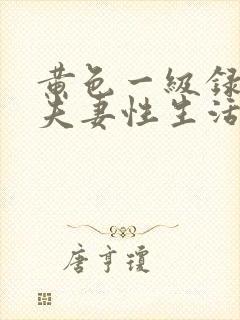 黄色一级録
夫妻性生活
唐亨瓊